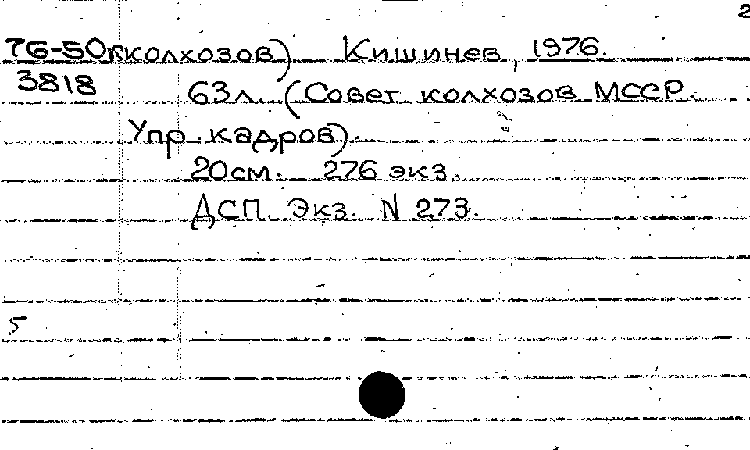 2
76-50к колхозов) Кишинев, 1976.
3818 63л. (Совет колхозов МССР.
Упр. кадров).
20см. 276 экз.
ДСП. Экз. N 273.
5